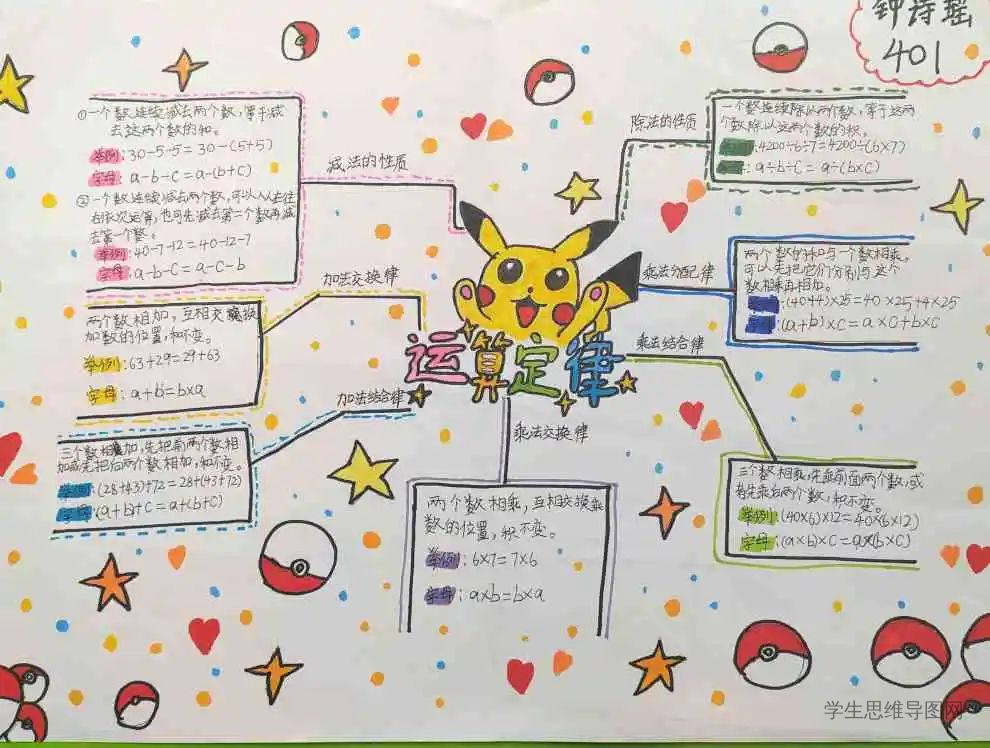 钟诗瑶
401
①一个数连续减去两个数,等于减
去这两个数的和。
举例:30-5-5=30-(5+5)
字母:a-b-c=a-(b+c)
②一个数连续减去两个数,可以从左往
右依次运算,也可先减去第二个数再减
去第一个数。
举例:40-7-12=40-12-7
字母:a-b-c=a-c-b
减法的性质
两个数相加,互相交换
加数的位置,和不变。
举例:63+29=29+63
字母:a+b=b×a
加法交换律
三个数相加,先把前两个数相
加或先把后两个数相加,和不变。
举例:(28+43)+72=28+(43+72)
字母:(a+b)+c=a+(b+c)
加法结合律
运算定律
乘法交换律
两个数相乘,互相交换乘
数的位置,积不变。
举例:6×7=7×6
字母:a×b=b×a
除法的性质
一个数连续除以两个数,等于这两
个数除以这两个数的积。
举例:4200÷6÷7=4200÷(6×7)
字母:a÷b÷c=a÷(b×c)
乘法分配律
两个数的和与一个数相乘,
可以先把它们分别与这个
数相乘再相加。
:(40+4)×25=40×25+4×25
:(a+b)×c=a×c+b×c
乘法结合律
三个数相乘,先乘前面两个数,或
者先乘后两个数,积不变。
举例:(40×6)×12=40×(6×12)
字母:(a×b)×c=a×(b×c)
学生思维导图网